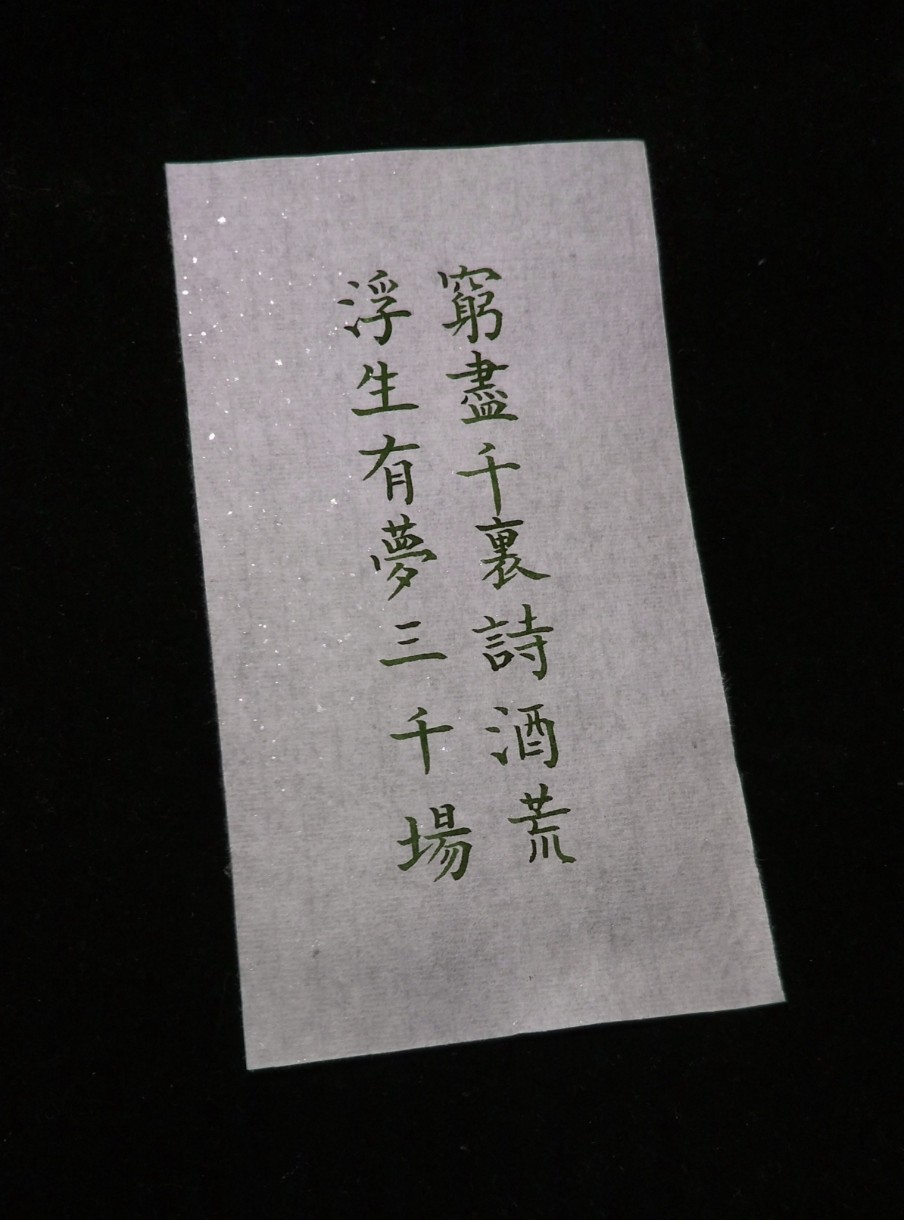 窮盡千裏詩酒荒
浮生有夢三千場